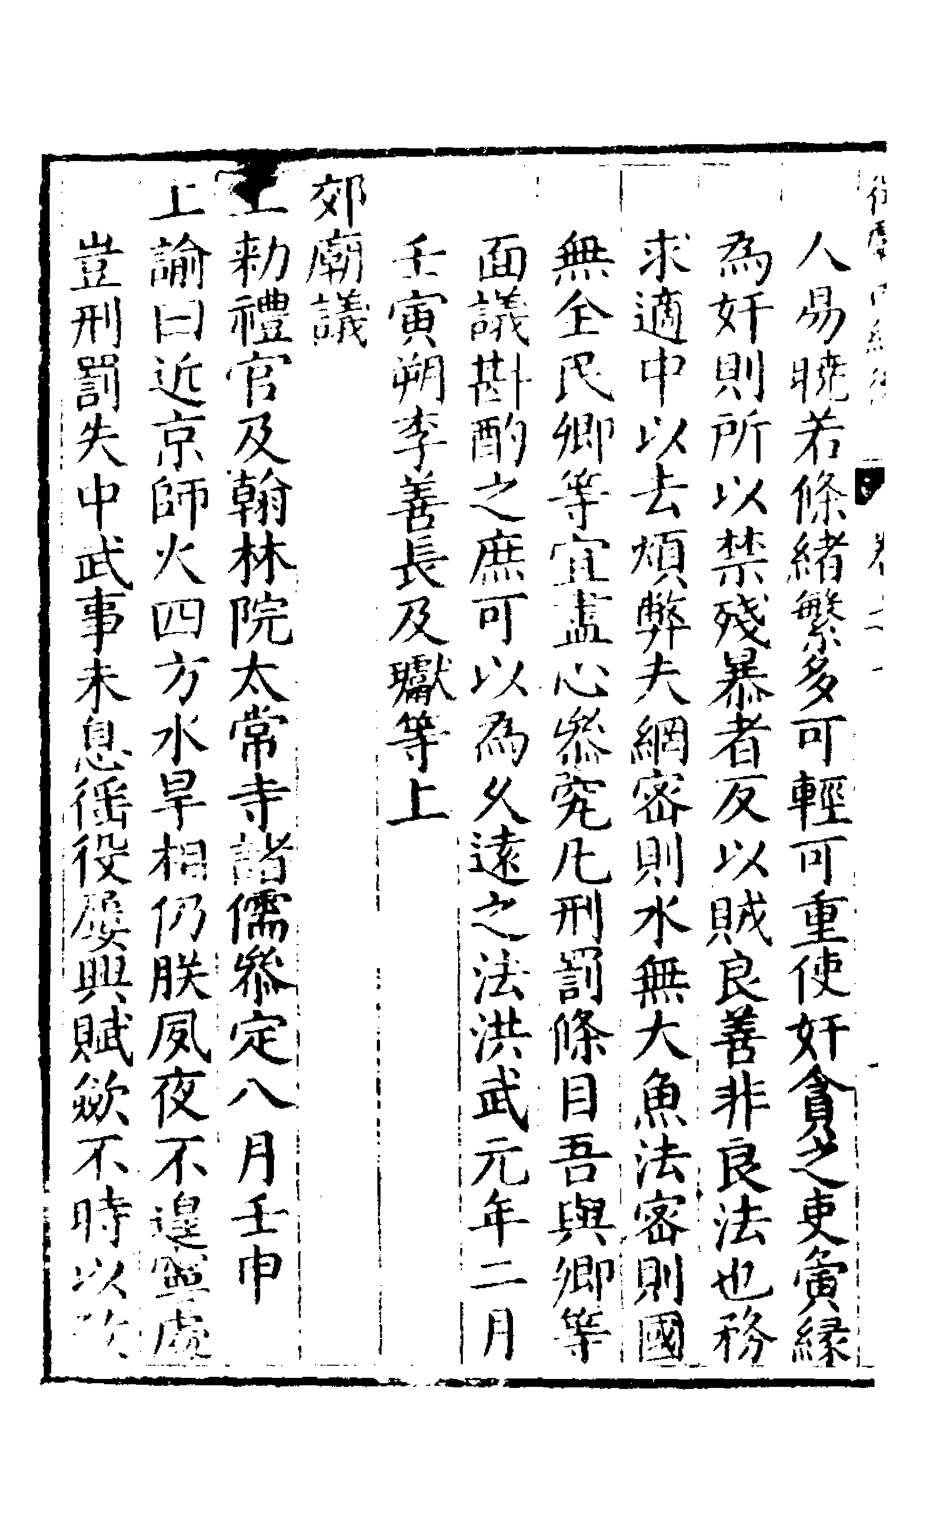 人易曉若條緒繁多可輕可重使奸貪之吏夤縁
為奸則所以禁殘暴者反以賊良善非良法也務
求適中以去煩弊夫網密則水無大魚法密則國
無全民卿等宜盡心叅究凢刑罰條目吾與卿等
面議斟酌之庶可以為久遠之法洪武元年二月
壬寅朔李善長及瓛等上
郊廟議
上勑禮官及翰林院太常寺諸儒叅定八月壬申
上諭曰近京師火四方水旱相仍朕夙夜不遑寧處
豈刑罰失中武事未息徭役屢興賦歛不時以致